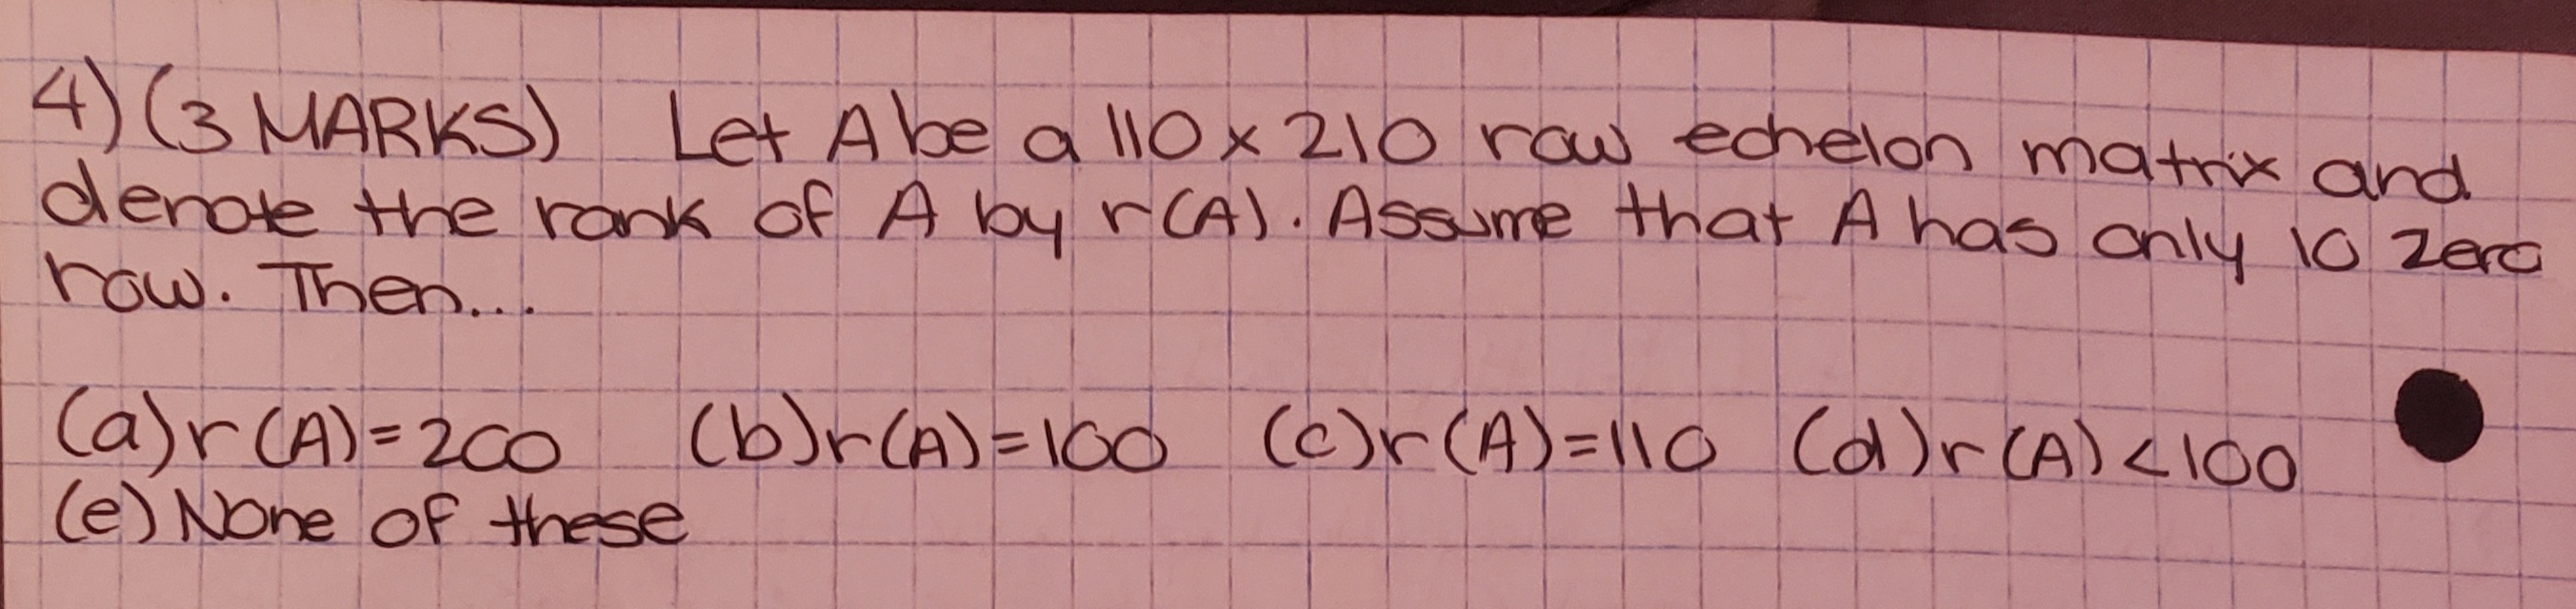 4) (3 MARKS) Let A be a 110 x 210 row echelon matrix and
denote the rank of A by r(A). Assume that A has only 10 zero
row. Then...
(a) r(A)=200 (b) r(A)=100 (c) r(A)=110 (d) r(A)<100
(e) None of these